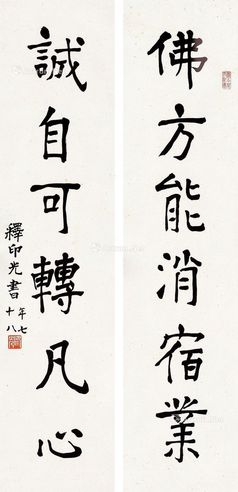 佛方能消宿業
誠自可轉凡心
釋印光書
年七十八